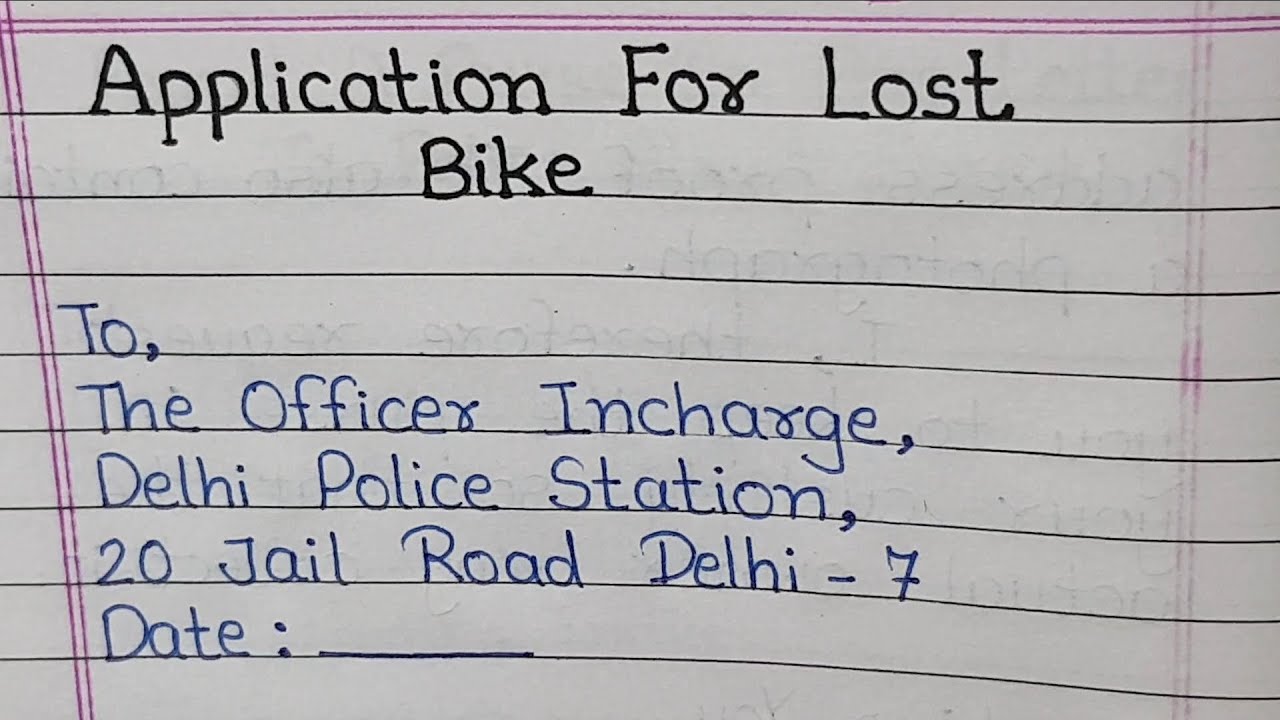 Application For Lost
Bike
To,
The Officer Incharge,
Delhi Police Station,
20 Jail Road Delhi - 7
Date : ________